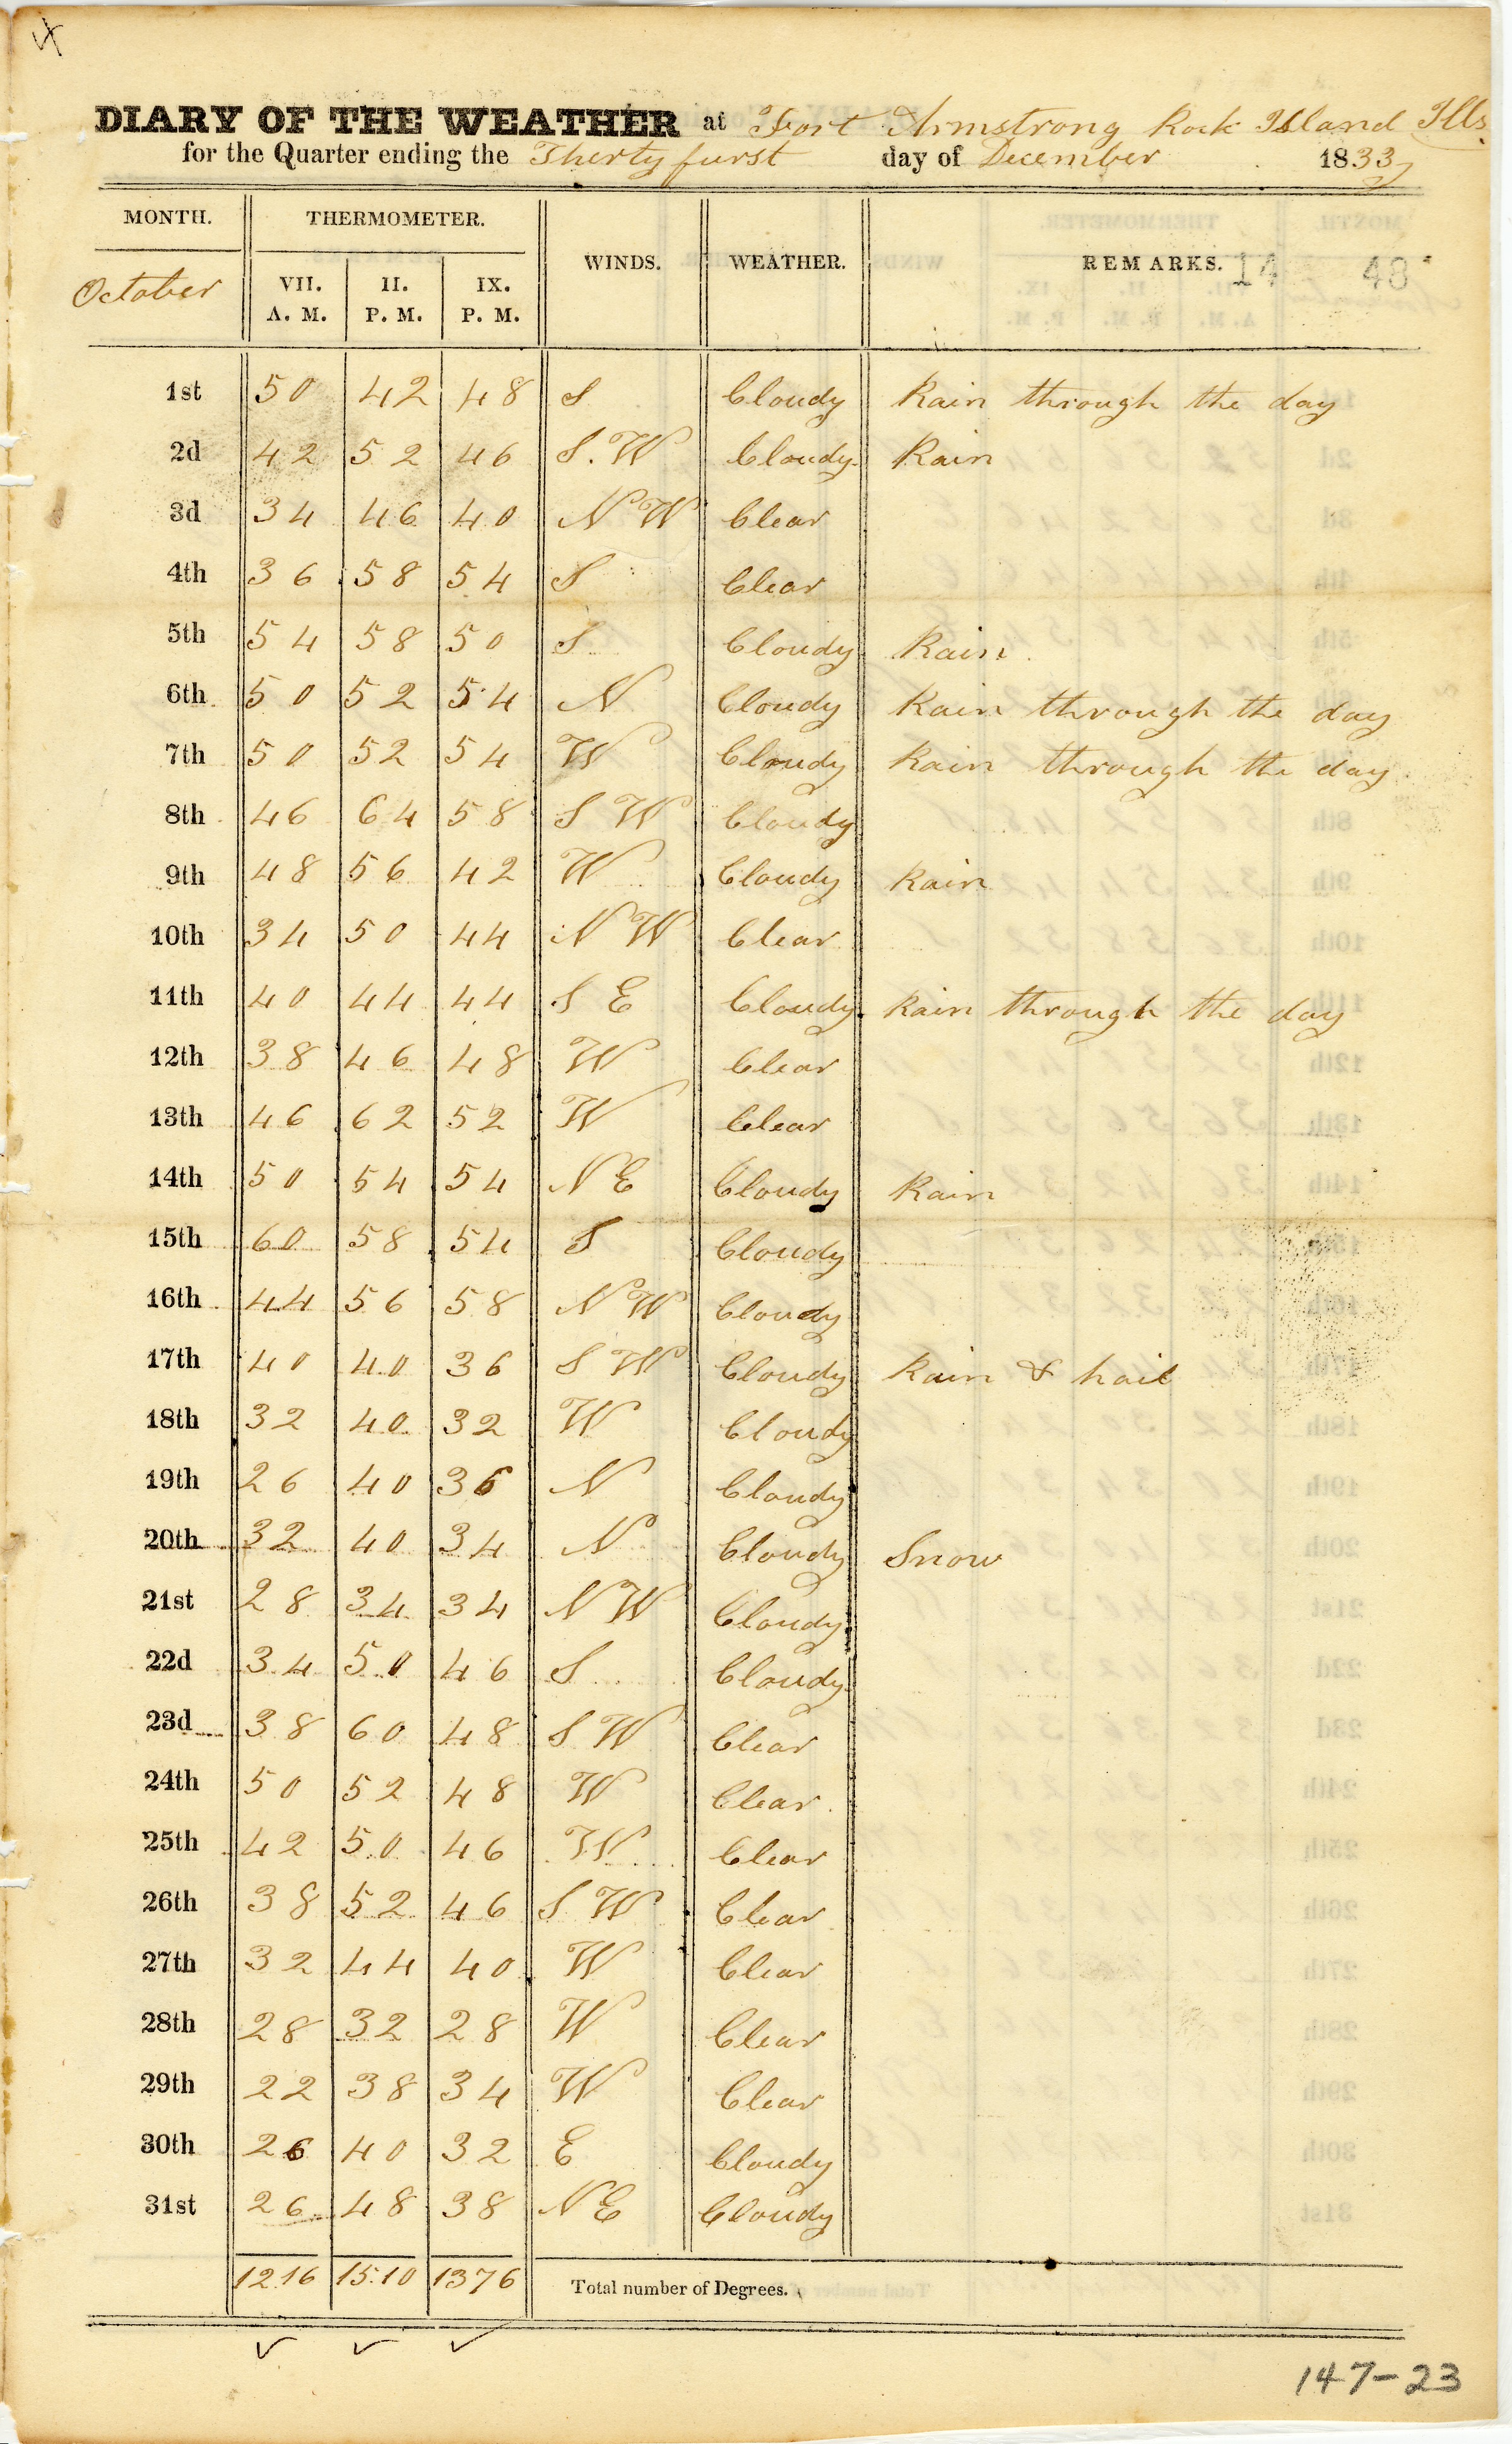 DIARY OF THE WEATHER at Fort Armstrong Rock Island Ills
for the Quarter ending the Therty furst day of December 1833
MONTH. THERMOMETER. WINDS. WEATHER. REMARKS. 14 48
October VII. A. M. II. P. M. IX. P. M.
1st 50 42 48 S Cloudy Rain through the day
2d 42 52 46 S. W Cloudy Rain
3d 34 46 40 N W Clear
4th 36 58 54 S Clear
5th 54 58 50 S Cloudy Rain
6th 50 52 54 N Cloudy Rain through the day
7th 50 52 54 W Cloudy Rain through the day
8th 46 64 58 S W Cloudy
9th 48 56 42 W Cloudy Rain
10th 34 50 44 N W Clear
11th 40 44 44 S E Cloudy Rain through the day
12th 38 46 48 W Clear
13th 46 62 52 W Clear
14th 50 54 54 N E Cloudy Rain
15th 60 58 54 S Cloudy
16th 44 56 58 N W Cloudy
17th 40 40 36 S W Cloudy Rain & hail
18th 32 40 32 W Cloudy
19th 26 40 36 N Cloudy
20th 32 40 34 N Cloudy Snow
21st 28 34 34 N W Cloudy
22d 34 50 46 S Cloudy
23d 38 60 48 S W Clear
24th 50 52 48 W Clear
25th 42 50 46 W Clear
26th 38 52 46 S W Clear
27th 32 44 40 W Clear
28th 28 32 28 W Clear
29th 22 38 34 W Clear
30th 26 40 32 E Cloudy
31st 26 48 38 N E Cloudy
1216 1510 1376 Total number of Degrees.
147-23